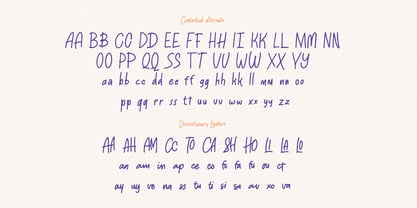 Contextual alternate
AA BB CC DD EE FF HH II KK LL MM NN
OO PP QQ SS TT UU VV WW XX YY
aa bb cc dd ee ff gg hh kk ll mm nn oo
pp qq rr ss tt uu vv ww xx yy zz
Discretionary Ligature
AA AH AM Cc TO CA SH HO LI LA LO
an am in ap ce co fo fa fu ou ct
ay uy ve na ss su tu ti si sa av xo va